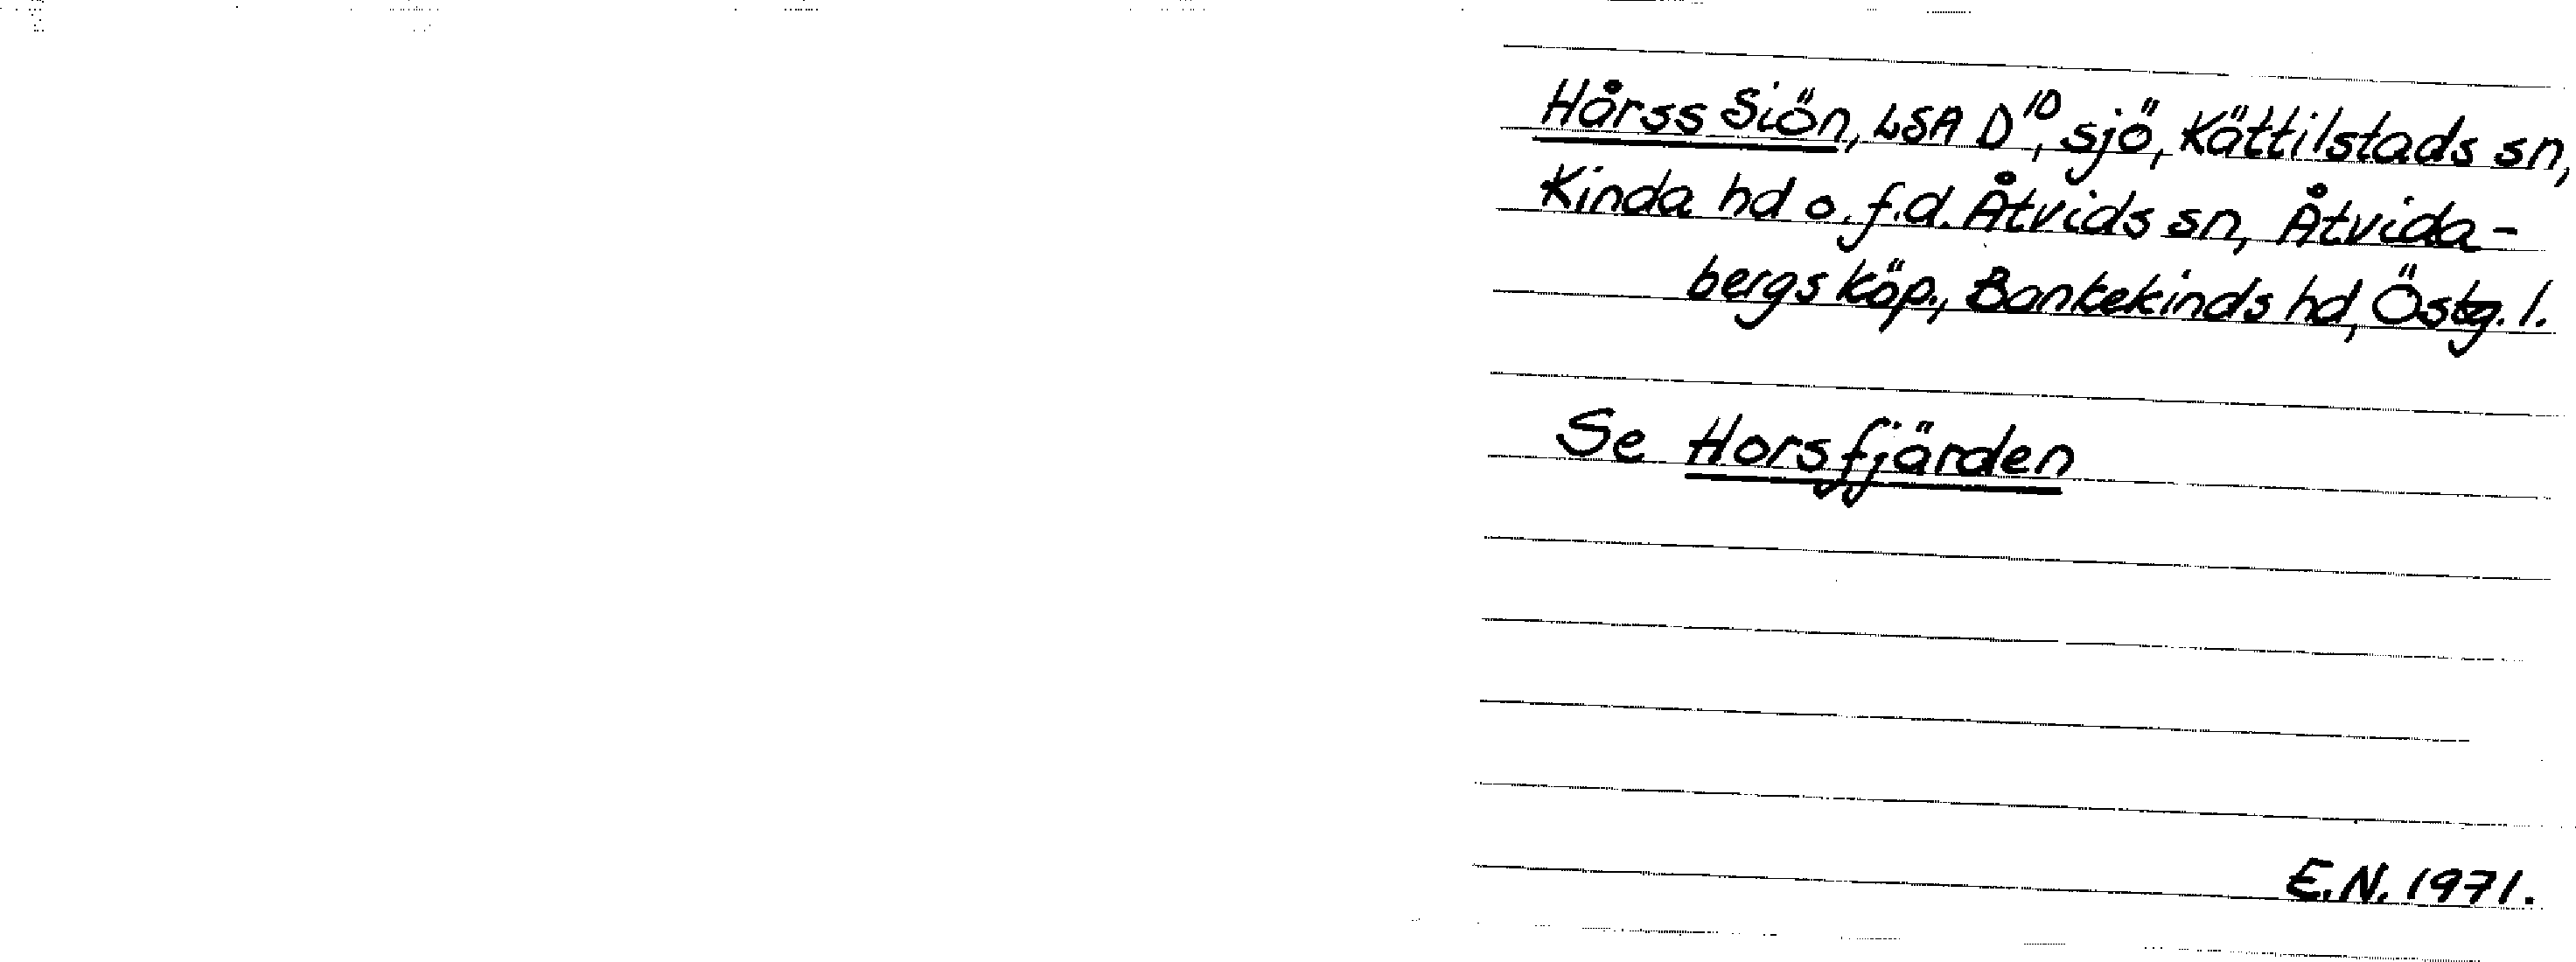 Hårss Siön, LSA D¹⁰, sjö, Kättilstads sn,
Kinda hd o. f.d. Åtvids sn, Åtvida-
bergs köp., Bankekinds hd, Östg. l.
Se Horsfjärden
E.N. 1971.